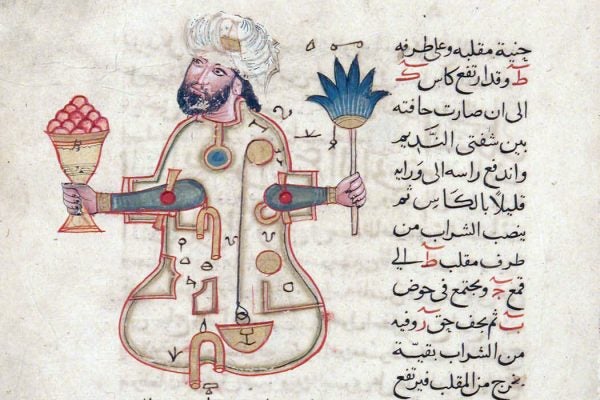 جنبة مقلبه وعلى طرفه
ط وقد ارتفع كاس ك
الى ان صارت حافته
بين شفتى النديم
واندفع راسه الى ورايه
قليلا بالكاس ثم
ينصب الشراب من
طرف مقلب ط الى
قمع ج ويجتمع فى حوض
ب ثم يخف حق وفيه
من الشراب بقية
يخرج من المقلب فيرتفع